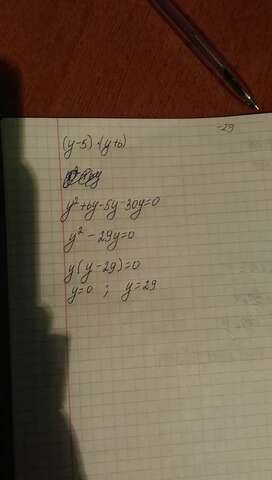 -29
(y-5)·(y+6)
y²+6y-5y-30y=0
y²-29y=0
y(y-29)=0
y=0 ; y=29